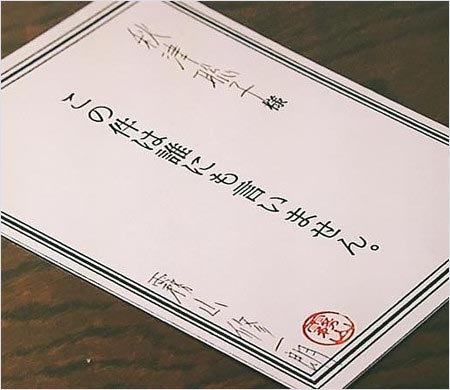 秋津 様
この件は誰にも言いません。
霧山 修一朗
霧山